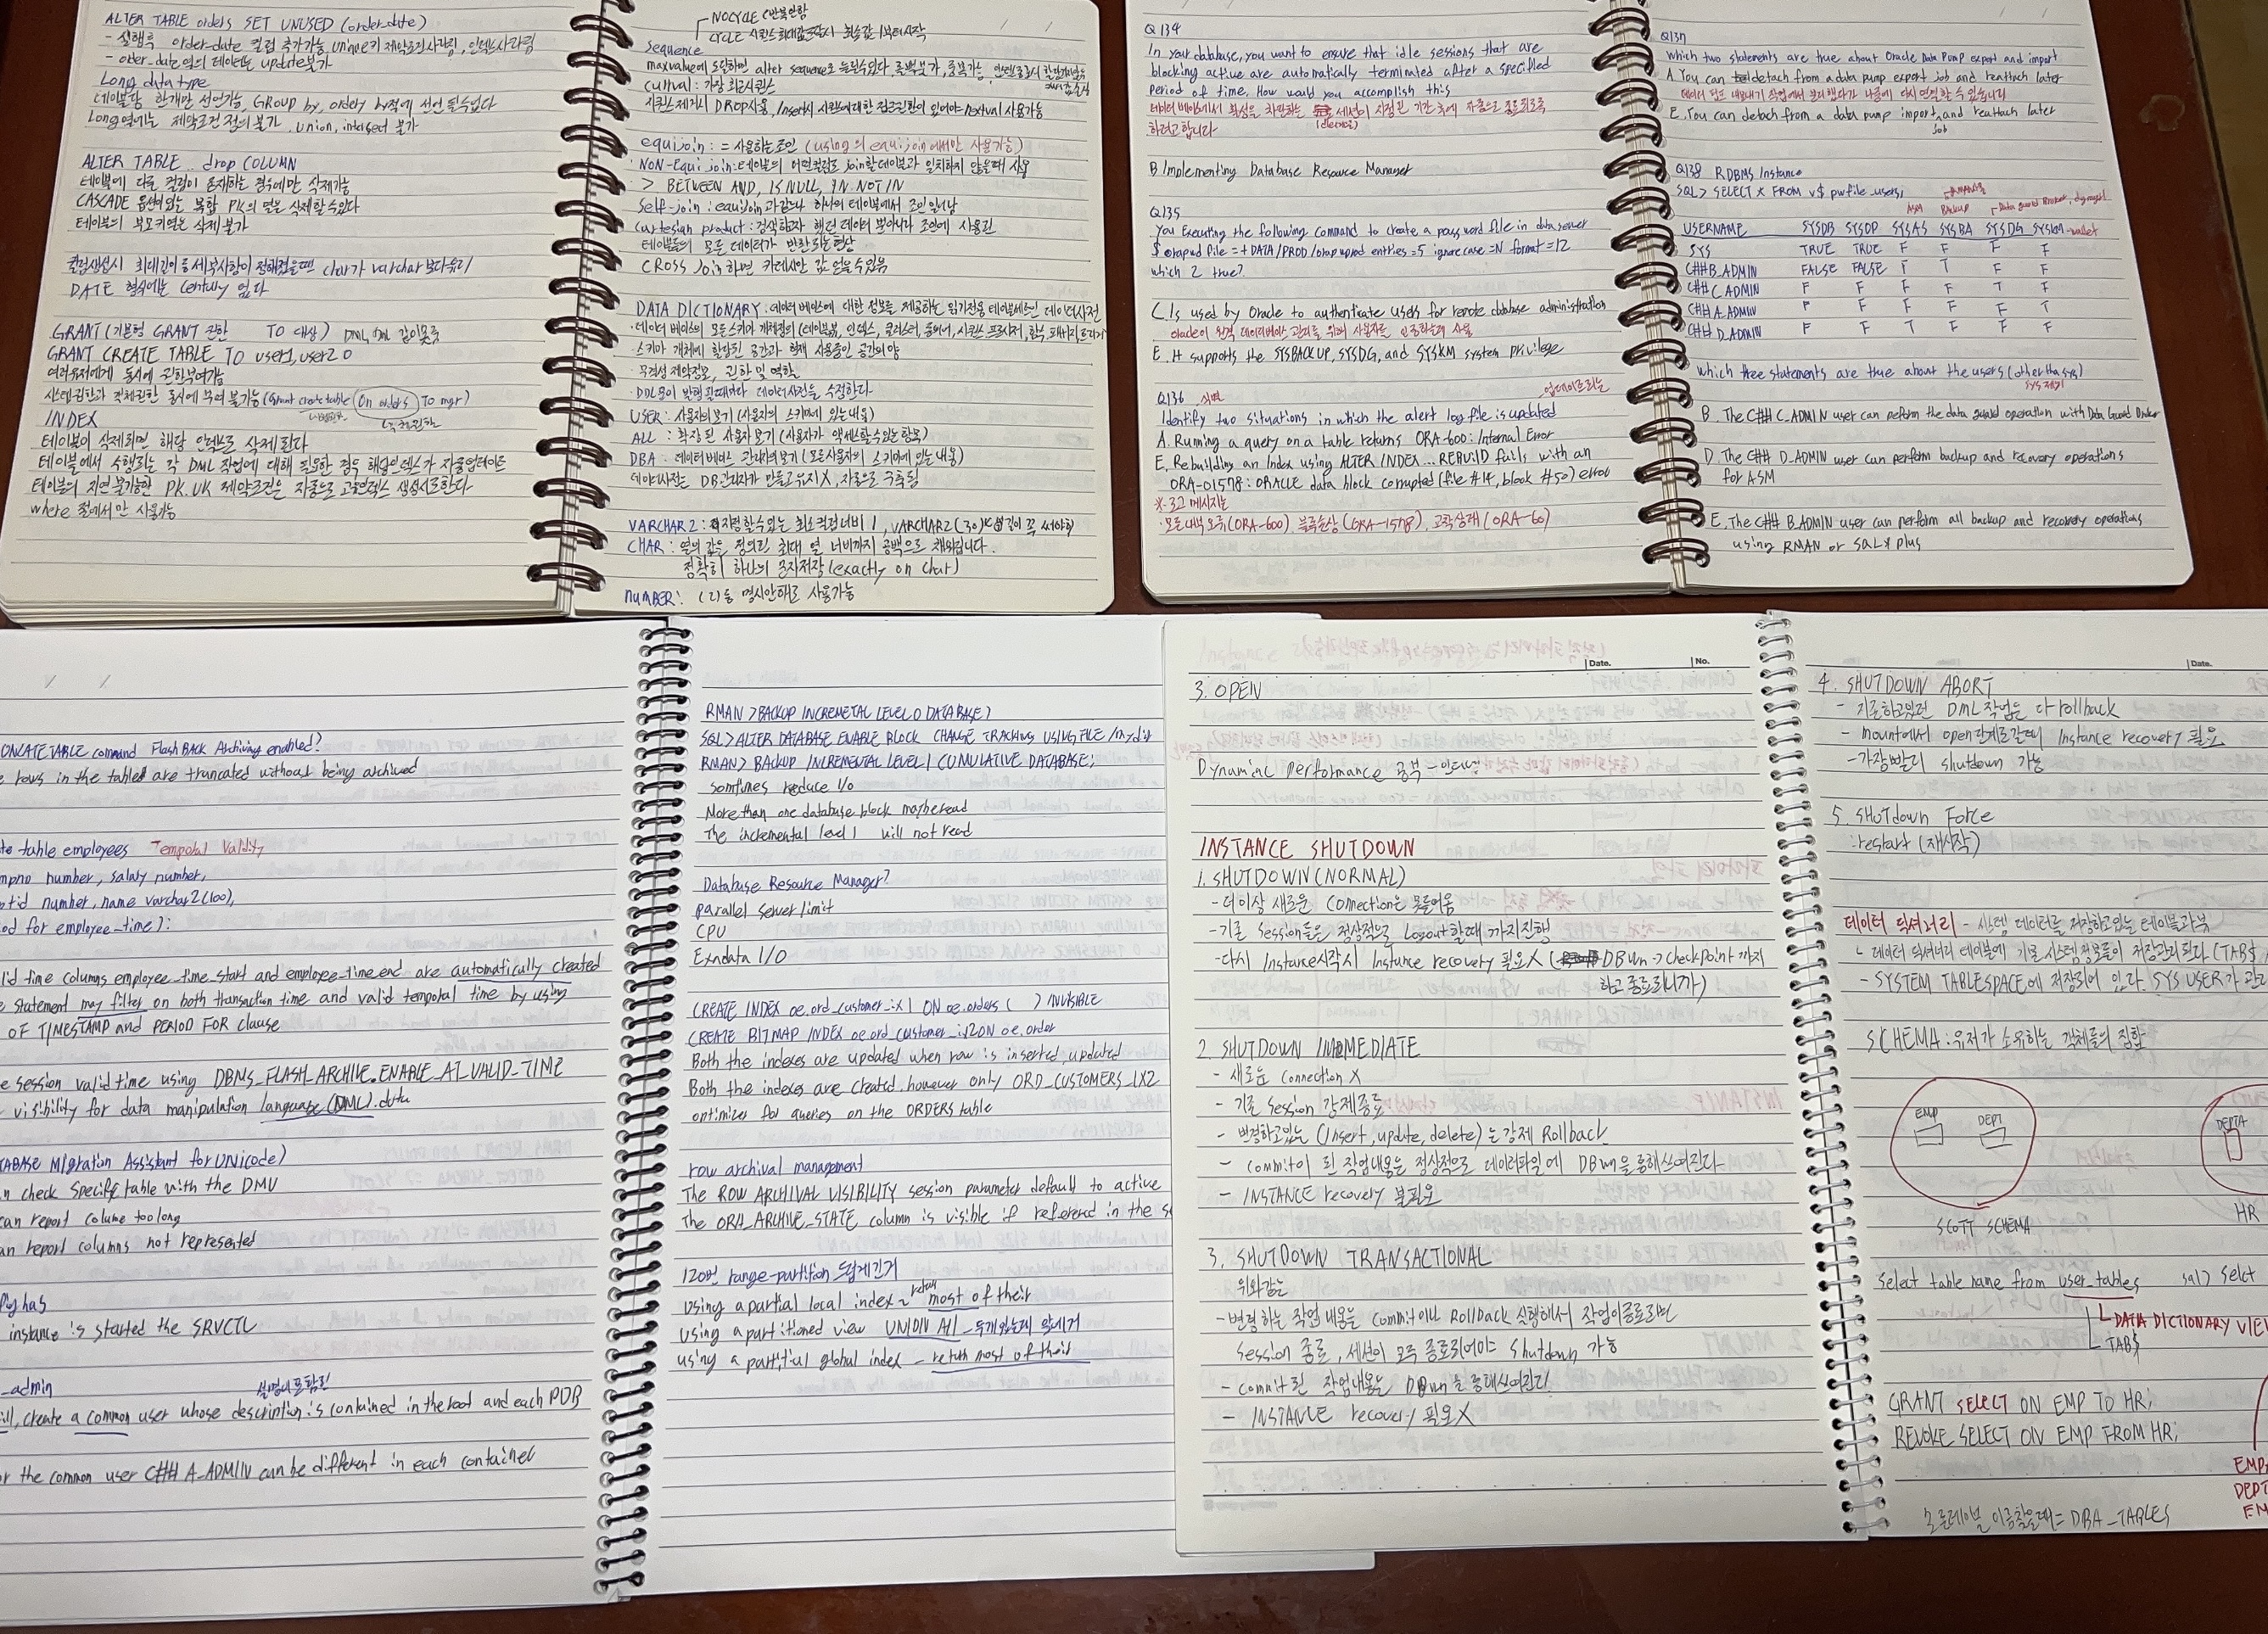 ALTER TABLE orders SET UNUSED (order-date)
- 실행후 order-date 컬럼 추가가능, unique키 제약조건사라짐, 인덱스사라짐
- order-date열의 데이터는 update불가
Long data type
테이블당 한개만 선언가능, GROUP by, order by절에 선언 될수없다
Long열에는 제약조건 정의불가, union, intersect 불가
ALTER TABLE .. drop COLUMN
테이블에 다른 컬럼이 존재하는 경우에만 삭제가능
CASCADE 옵션이없는 복합 PK의 열은 삭제할수있다
테이블의 부모키열은 삭제 불가
컬럼생성시 최대길이등 세부사항이 정해졌을땐 char가 varchar 보다유리
DATE 형식에는 century 없다
GRANT (기본형 GRANT 권한 TO 대상)
GRANT CREATE TABLE TO user1, user2 O
여러유저에게 동시에 권한부여가능
시스템권한과 객체권한 동시에 부여 불가능 (Grant create table (on orders) TO mgr)
INDEX
테이블이 삭제되면 해당 인덱스도 삭제된다
테이블에서 수행되는 각 DML 작업에 대해 필요한 경우 해당인덱스가 자동업데이트
테이블의 지연 불가능한 PK, UK 제약조건은 자동으로 고유인덱스 생성시도한다
where 절에서만 사용가능
NOCYCLE (반복안함
CYCLE
sequence
maxvalue에 도달하면 alter sequence로
currval : 가장 최근시퀀스
시퀀스제거시 DROP사용, insert시 시퀀스에대한 접근권한이 있어야 nextval 사용가능
equijoin : = 사용하는조인 (using 의 equijoin에서만 사용가능)
NON-Equi join : 테이블의 어떤컬럼도 join할테이블과 일치하지 않을때 사용
> BETWEEN AND, IS NULL, IN, NOT IN
self-join : equijoin과 같으나 하나의 테이블에서 조인 일어남
cartesian product : 검색하고자 했던 데이터 뿐아니라 조인에 사용된
테이블들의 모든 데이터가 반환되는 현상
CROSS Join하면 카테시안 값 얻을수있음
DATA DICTIONARY : 데이터 베이스에 대한 정보를 제공하는 읽기전용 테이블세트인 데이터사전
· 데이터 베이스의 모든스키마 객체정의 (테이블,뷰, 인덱스, 클러스터, 동의어, 시퀀스, 프로시저, 함수, 패키지, 트리거
· 스키마 객체에 할당된 공간과 현재 사용중인 공간의양
· 무결성 제약정보, 권한 및 역할
· DDL문이 발행될때마다 데이터사전을 수정한다
USER : 사용자의보기 (사용자의 스키마에 있는내용)
ALL : 확장된 사용자 보기 (사용자가 액세스할수있는 항목)
DBA : 데이터베이스 관리자의보기 (모든사용자의 스키마에 있는 내용)
데이터사전은 DB관리자가 만들고유지X, 자동으로 구축됨
VARCHAR2 : 지정할수있는 최소컬럼너비 1, VARCHAR2(30)
CHAR : 열의 값은 정의된 최대 열 너비까지 공백으로 채워집니다.
정확히 하나의 문자저장 (exactly on char)
NUMBER : (2)등 명시안해도 사용가능
Q134
In your database, you want to ensure that idle sessions that are
blocking active are automatically terminated after a specified
period of time, How would you accomplish this
데이터베이스에서 활성을 차단하는 세션이 지정된 기간 후에 자동으로 종료되도록
하려고합니다
B Implementing Database Resource Manager
Q135
You Executing the following command to create a password file in data server
$ orapwd file = + DATA/PROD/orapwprod entries = 5 ignore case = N format = 12
which 2 true?
C. Is used by Oracle to authenticate users for remote database administration
oracle이 원격 데이터베이스 관리를 위해 사용자를 인증하는데 사용
E. It supports the SYSBACKUP, SYSDG, and SYSKM system privilege
Q136 식별 업데이트되는
Identify two situations in which the alert log file is updated
A. Runing a query on a table returns ORA-600 : Internal Error
E. Rebuilding an Index using ALTER INDEX ... REBUILD fails with an
ORA-01578 : ORACLE data block corrupted (file #14, block #50) error
※ 로그 메시지는
· 모든내부 오류(ORA-600), 블록손상 (ORA-1578), 교착상태 (ORA-60)
Q137
which two statements are true about Oracle Data Pump export and import
A. You can detach from a data pump export job and reattach later
데이터 펌프 내보내기 작업에서 분리했다가 나중에 다시 연결할 수 있습니다
E. You can detach from a data pump import, and reattach later
Job
Q138 RDBMS Instance
SQL> SELECT * FROM v$ pwfile_users;
ASM Backup Data guard Broker, dgmgrl
USERNAME SYSDB SYSOP SYSAS SYSBA SYSDG SYSKM -wallet
SYS TRUE TRUE F F F F
C##B_ADMIN FALSE FALSE F T F F
C##C_ADMIN F F F F T F
C##A_ADMIN F F F F F T
C##D_ADMIN F F T F F F
which three statements are true about the users (other tha sys)
sys 제외
B. The C## C_ADMIN user can peform the data guard operation with Data Guard Broker
D. The C## D_ADMIN user can perform backup and recovery operations
for ASM
E. The C## B_ADMIN user can perform all backup and recovery operations
using RMAN or SQL* plus
ONCATE TABLE command FlashBACK Archiving enabled?
e rows in the table are truncated without being archived
te table employees Temporal Validity
mpno number, salaty number,
ptid number, name varchar2(100),
od for employee_time);
lid time columns employee_time_start and employee_time_end are automatically created
e statement may filter on both transaction time and valid temporal time by using
OF TIMESTAMP and PERIOD FOR clause
e session valid time using DBMS_FLASH_ARCHIVE.ENABLE_AT_VALID_TIME
visibility for data manipulation language (DML).data
TABASE Migration Assistant for UNicode)
n check specify table with the DMU
can report colume too long
an report columns not represented
fig has
instance is started the SRVCTL
_admin
ill, create a common user whose description is contained in the root and each PDB
or the common user C## A_ADMIN can be different in each container
RMAN > BACKUP INCREMETAL LEVEL 0 DATABASE;
SQL > ALTER DATABASE ENABLE BLOCK CHANGE TRACKING USING FILE /mydir
RMAN> BACKUP INCREMENTAL LEVEL 1 CUMULATIVE DATABASE;
somtimes reduce I/O
More than one database block maybe read
The incremental level 1 will not read
Database Resource Manager?
parallel server limit
CPU
Exadata I/O
CREATE INDEX oe.ord_customer_ix1 ON oe.orders ( ) INVISIBLE
CREATE BITMAP INDEX oe.ord_customer_ix2 ON oe.order
Both the indexes are updated when row is inserted, updated
Both the indexes are created, however only ORD_CUSTOMERS_IX2
optimizer for queries on the ORDERS table
row archival management
The ROW ARCHIVAL VISIBILITY session parameter default to active
The ORA_ARCHIVE_STATE column is visible if refereced in the s
120번 range-partition
using a partial local index - return most of their
using a partitioned view UNION All
using a partitial global index - return most of their
Date. No.
3. OPEN
Dynaminc Performance 공부 - 인터넷
INSTANCE SHUTDOWN
1. SHUTDOWN (NORMAL)
- 더이상 새로운 Connection은 못들어옴
- 기존 Session들은 정상적으로 Logout할때 까지진행
- 다시 Instance시작시 Instance recovery 필요X ( DBwn -> check Point 까지
하고 종료되니까)
2. SHUTDOWN IMMEDIATE
- 새로운 connection X
- 기존 Session 강제종료
- 변경하고있는 (Insert, update, delete)는 강제 Rollback
- commit이 된 작업내용은 정상적으로 데이터파일에 DBwn을 통해쓰여진다.
- INSTANCE recovery 불필요
3. SHUTDOWN TRANSACTIONAL
위와같은
- 변경하는 작업 내용은 Commit이나 Rollback 실행해서 작업이종료되면
Session 종료, 세션이 모두 종료되어야 shutdown 가능
- commit된 작업내용은 DBwn을 통해쓰여진다.
- INSTANCE recovery 필요X
Date.
4. SHUTDOWN ABORT
- 기존하고있던 DML 작업을 다 rollback
- mount에서 open단계로갈때 Instance recovery 필요
- 가장빨리 shutdown 가능
5. shutdown Force
: restart (재시작)
데이터 딕셔너리 - 시스템 데이터를 저장하고있는 테이블과뷰
ㄴ 데이터 딕셔너리 테이블에 기존 시스템정보들이 저장관리된다 (TAB$
- SYSTEM TABLESPACE에 저장되어 있다. SYS USER가 관리
SCHEMA : 유저가 소유하는 객체들의 집합
EMP DEPT
DEPTA
SCOTT SCHEMA
HR
Select table name from user_tables sql> selct
DATA DICTIONARY VIE
TAB$
GRANT SELECT ON EMP TO HR;
REVOKE SELECT ON EMP FROM HR;
EMP
DEPT
EM
모든테이블 이름찾을때 = DBA_TABLES